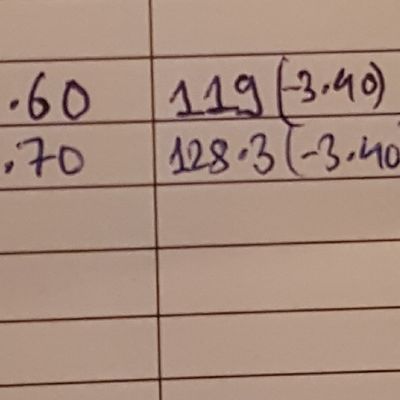 .60 119 (-3.40)
.70 128.3 (-3.40